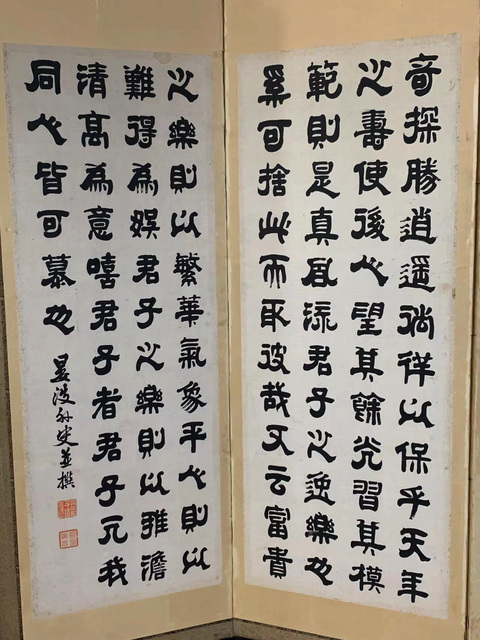 奇探勝逍遙徜徉以保乎天年
之壽使後人望其餘光習其模
範則是真風流君子之逸樂也
奚可捨此而取彼哉又云富貴
之樂則以繁華氣象平人則以
難得為娯君子之樂則以雅澹
清高為意嘻君子者君子元我
同人皆可慕也
外史並撰